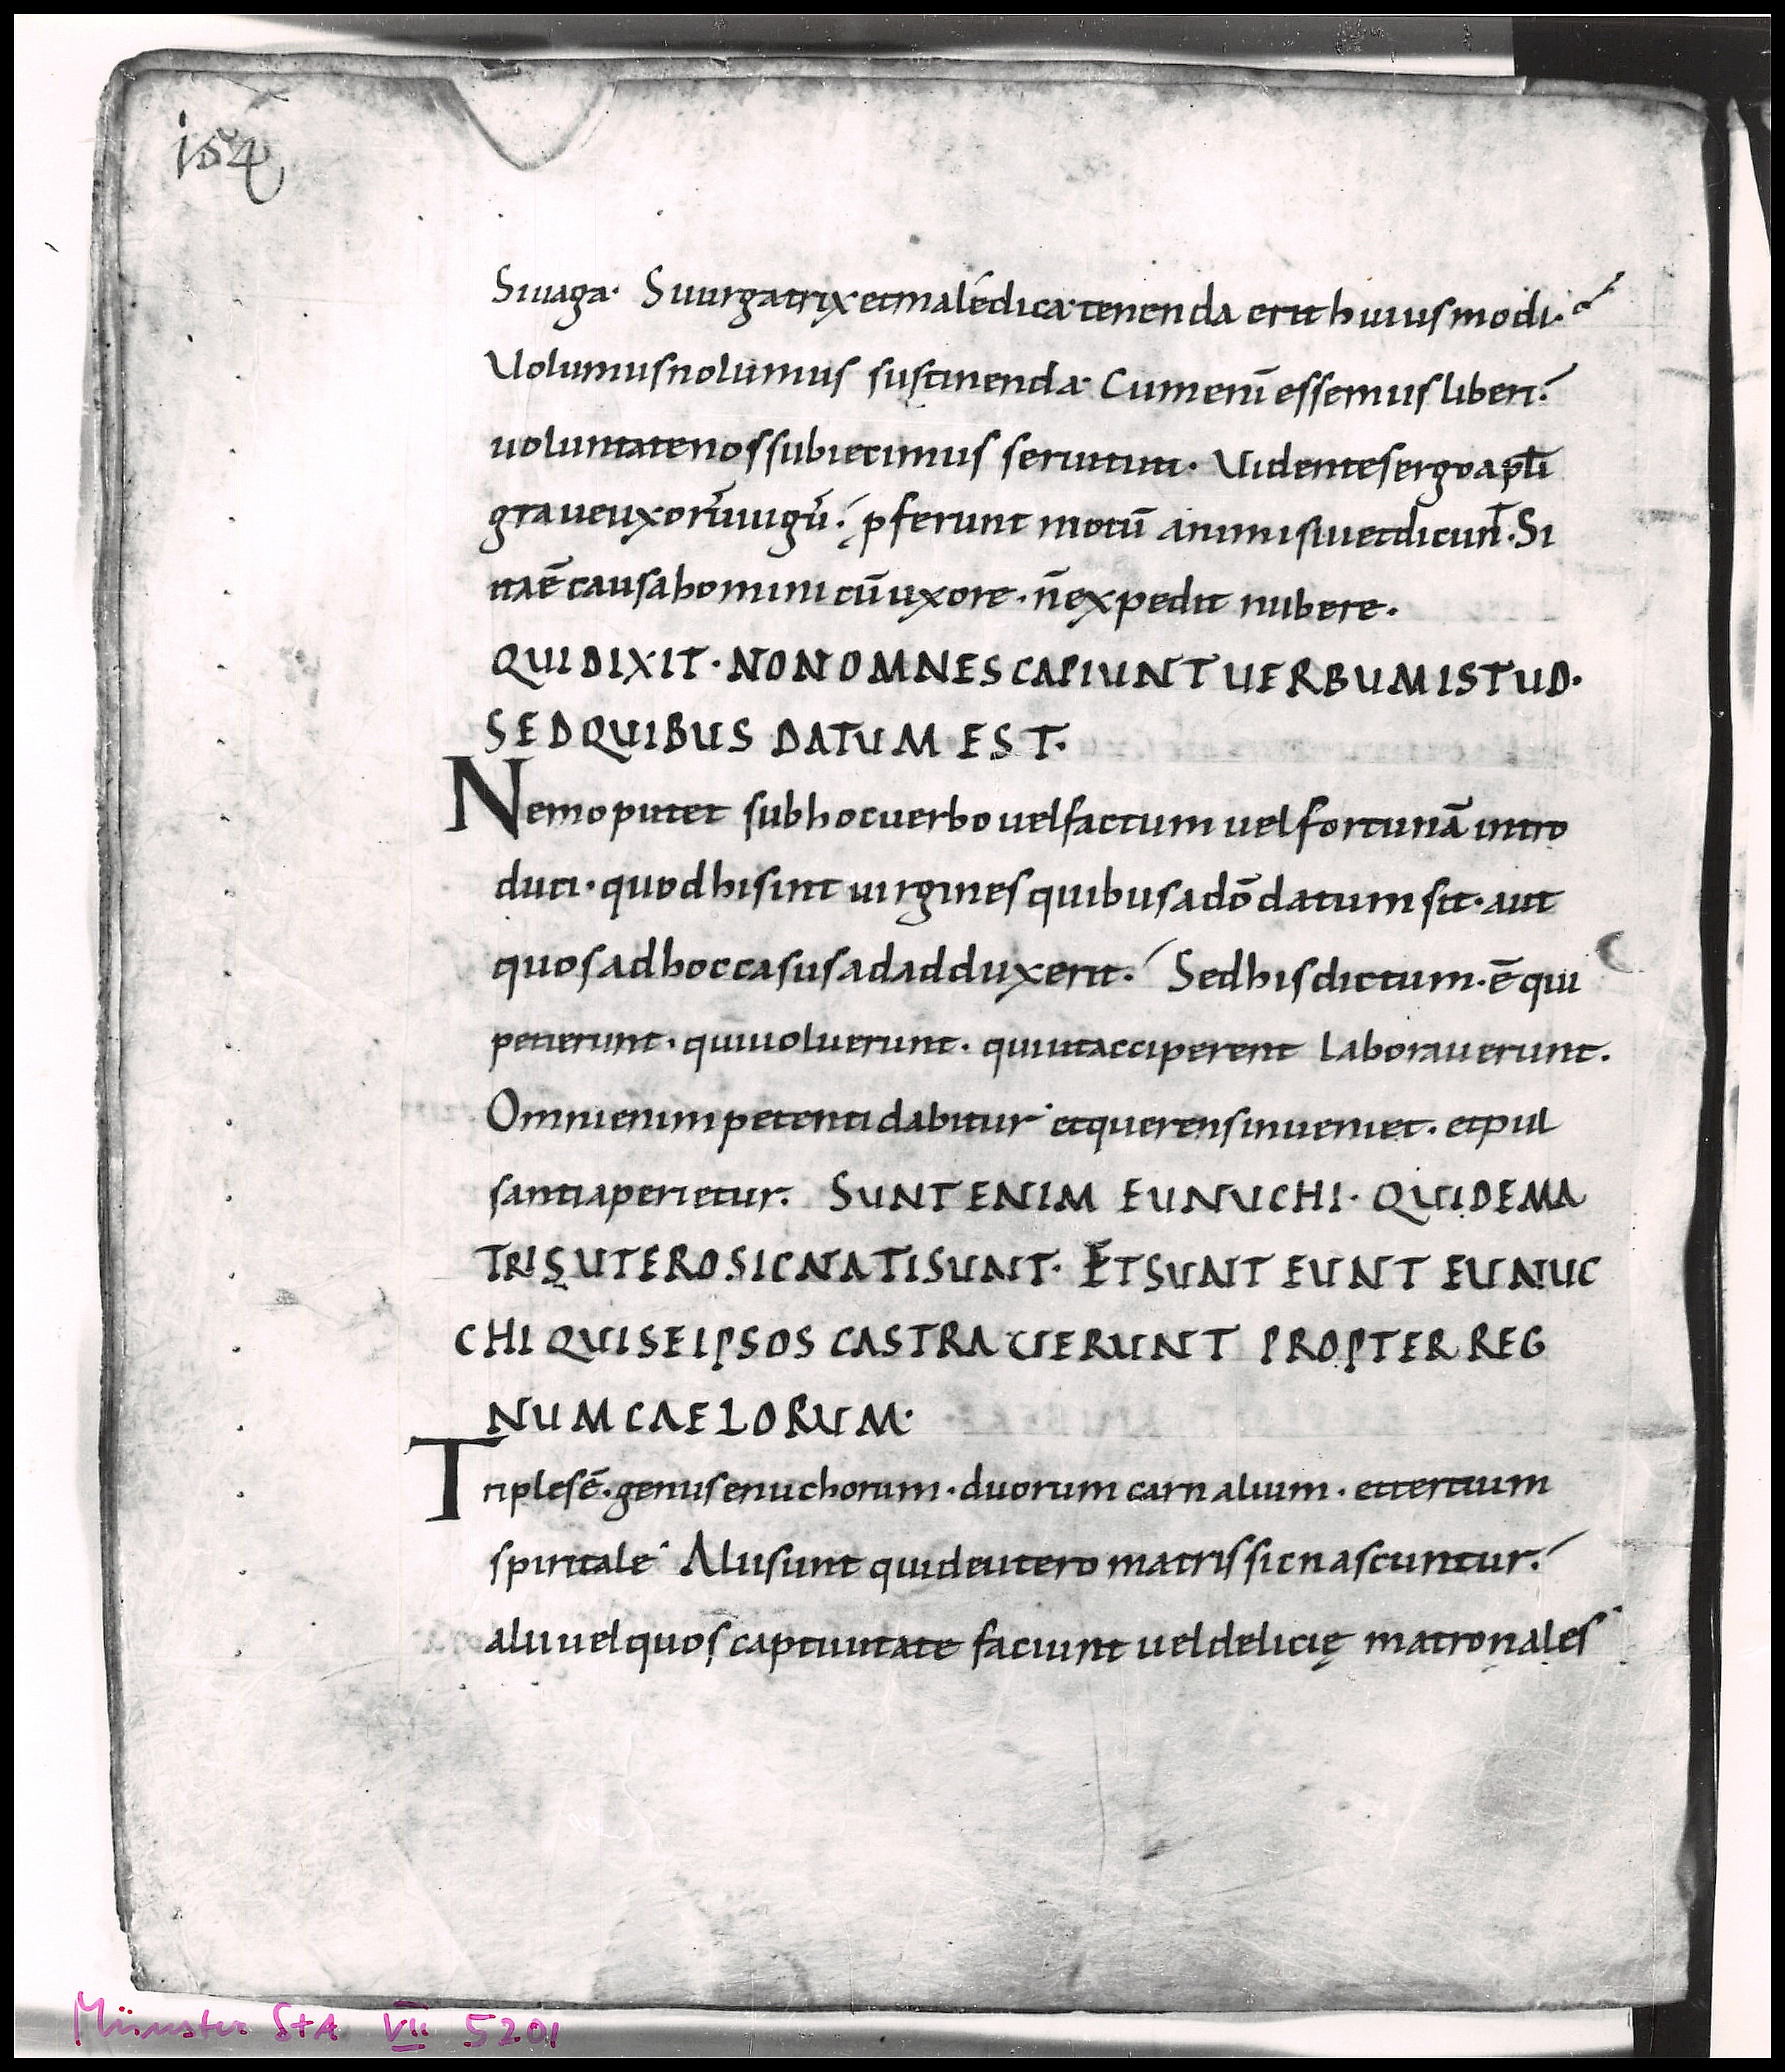 154
Siuaga· Siiurgatrix etmaledica· tenenda erit huiusmodi·
Uolumusnolumus sustinenda· Cumenī essemus liberi·
uoluntatenossubiecimus seruituti· Uidentesergoapłi
graueuxorūiugū· p̨ferunt motū animisiuetdicun̄t·Si
itaē̄ causahomini cūuxore· n̄expedit nubere·
QUIDIXIT· NONOMNES CAPIUNT UERBUMISTUD·
SEDQUIBUS DATUM EST·
Nemoputet subhocuerbouelfactum uelfortunā intro
duci· quodhisint uirginesquibusadō datumsit· aut
quosadhoccasusadadduxerit· Sedhisdictum·ē qui
petierunt· quiuoluerunt· quiutacciperent laborauerunt·
Omnienimpetentidabitur· etquerensinueniet· etpul
santiaperietur· SUNTENIM EUNUCHI· QUIDEMA
TRISUTEROSICNATISUNT· ETSUNT EUNT EUNUC
CHI QUISEIPSOS CASTRAUERUNT PROPTERREG
NUMCAELORUM·
Triplesē·genusenuchorum·duorum carnalium· ettertium
spiritale· Aliisunt quideutero matrissicnascuntur·
aliiuelquos captiuitate faciunt ueldelicię matronales
Münster StA VII 5201